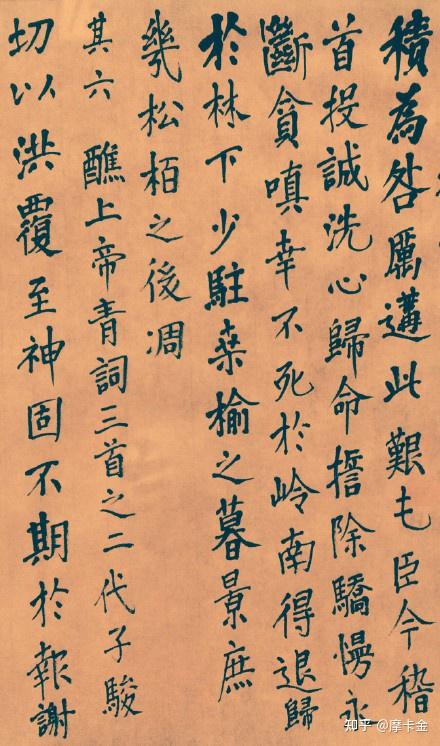 積為咎厲遘此艱屯臣今稽
首投誠洗心歸命誓除驕慢永
斷貪嗔幸不死於岭南得退歸
於林下少駐桑榆之暮景庶
幾松栢之後凋
其六 醮上帝青詞三首之二代子駿
切以洪覆至神固不期於報謝
知乎 @摩卡金